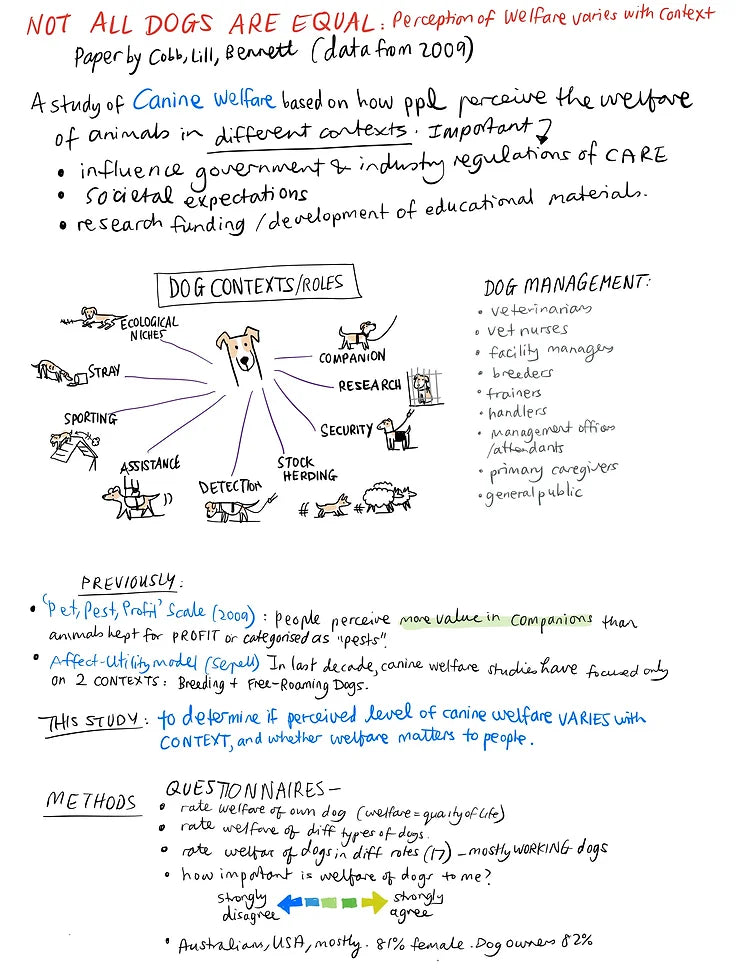 NOT ALL DOGS ARE EQUAL: Perception of Welfare varies with Context
Paper by Cobb, Lill, Bennett (data from 2009)
A study of Canine Welfare based on how ppl perceive the welfare
of animals in different contexts. Important?
• influence government & industry regulations of CARE
• societal expectations
• research funding / development of educational materials.
DOG CONTEXTS/ROLES
ECOLOGICAL
NICHES
STRAY
SPORTING
ASSISTANCE
DETECTION
STOCK
HERDING
SECURITY
RESEARCH
COMPANION
DOG MANAGEMENT:
• veterinarians
• vet nurses
• facility managers
• breeders
• trainers
• handlers
• management officers
/attendants
• primary caregivers
• general public
PREVIOUSLY:
• 'Pet, Pest, Profit' Scale (2009) : People perceive more value in companions than
animals kept for PROFIT or categorised as "pests".
• Affect-Utility model (Serpell) In last decade, canine welfare studies have focused only
on 2 CONTEXTS: Breeding + Free-Roaming Dogs.
THIS STUDY: to determine if perceived level of canine welfare VARIES with
CONTEXT, and whether welfare matters to people.
METHODS
QUESTIONNAIRES —
• rate welfare of own dog (welfare = quality of life)
• rate welfare of diff types of dogs.
• rate welfar of dogs in diff roles (17) – mostly WORKING dogs
• how important is welfare of dogs to me?
strongly
disagree
strongly
agree
• Australian, USA, mostly. 81% female. Dog owners 82%